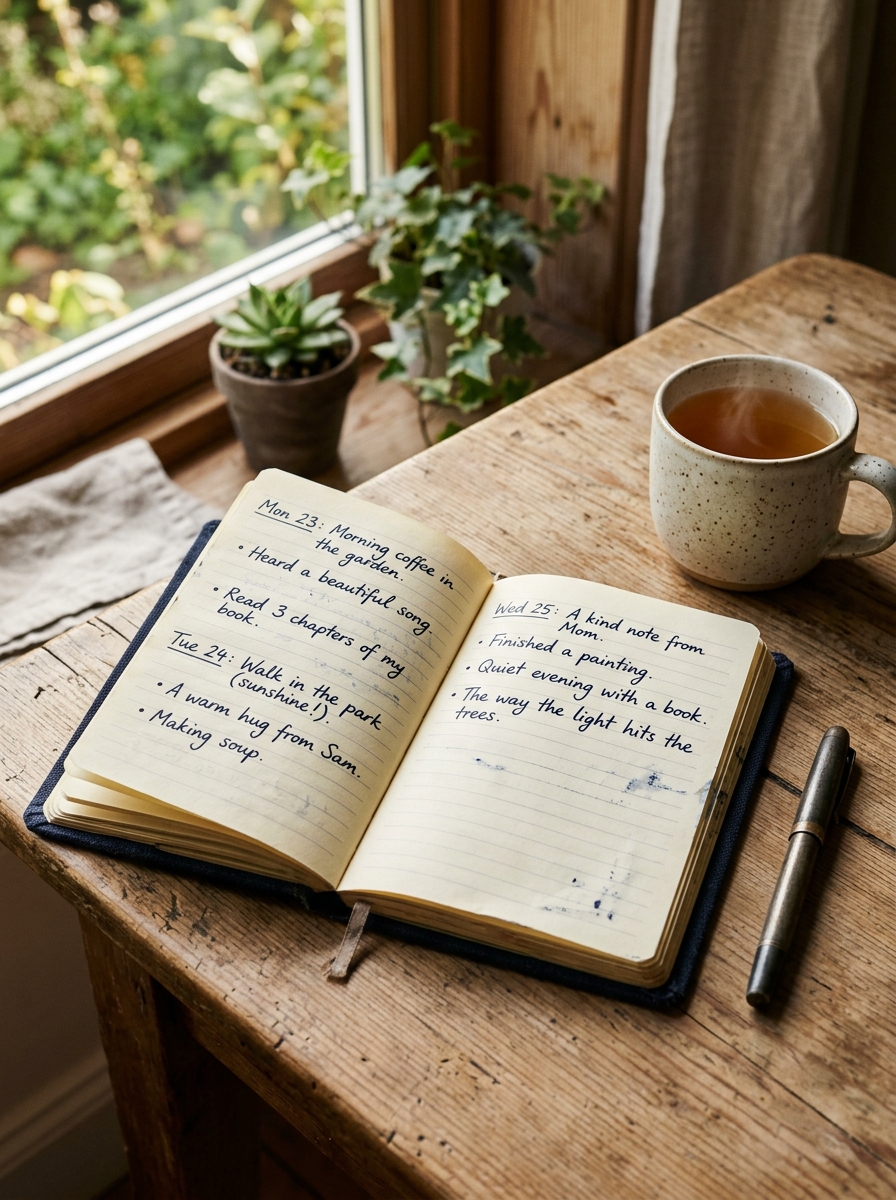 Mon 23: Morning coffee in
the garden.
• Heard a beautiful song.
• Read 3 chapters of my
book.
Tue 24: Walk in the park
(sunshine!).
• A warm hug from Sam.
• Making soup.
Wed 25: A kind note from
Mom.
• Finished a painting.
• Quiet evening with a book.
• The way the light hits the
trees.